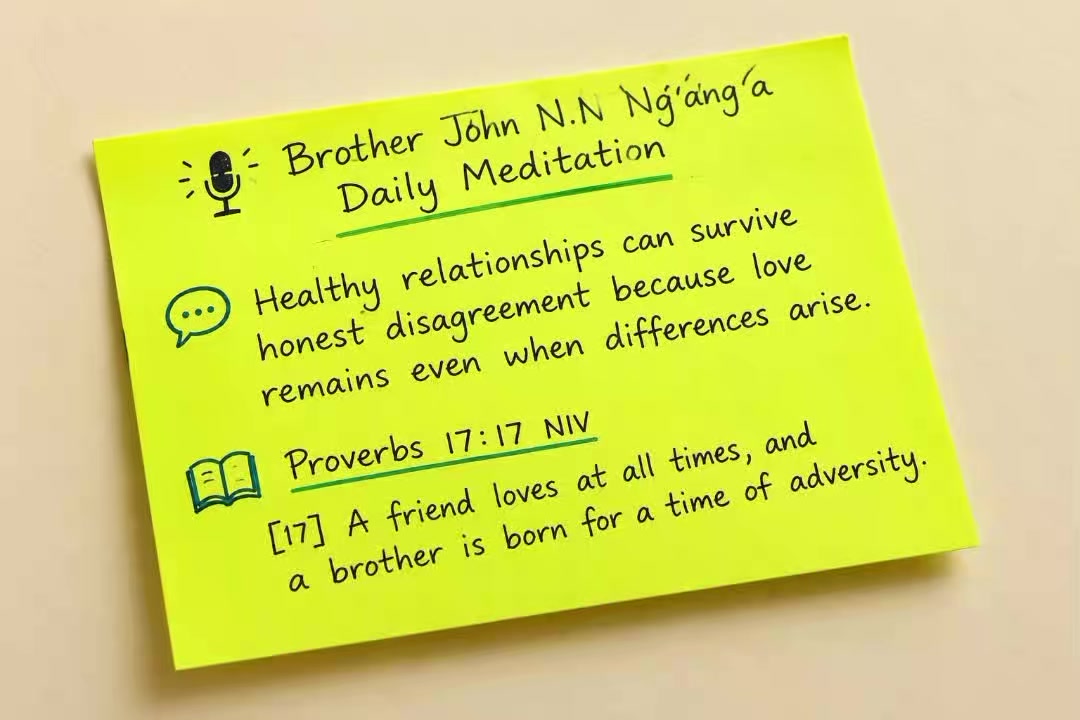 Brother John N.N Ng'ang'a
Daily Meditation
Healthy relationships can survive
honest disagreement because love
remains even when differences arise.
Proverbs 17:17 NIV
[17] A friend loves at all times, and
a brother is born for a time of adversity.